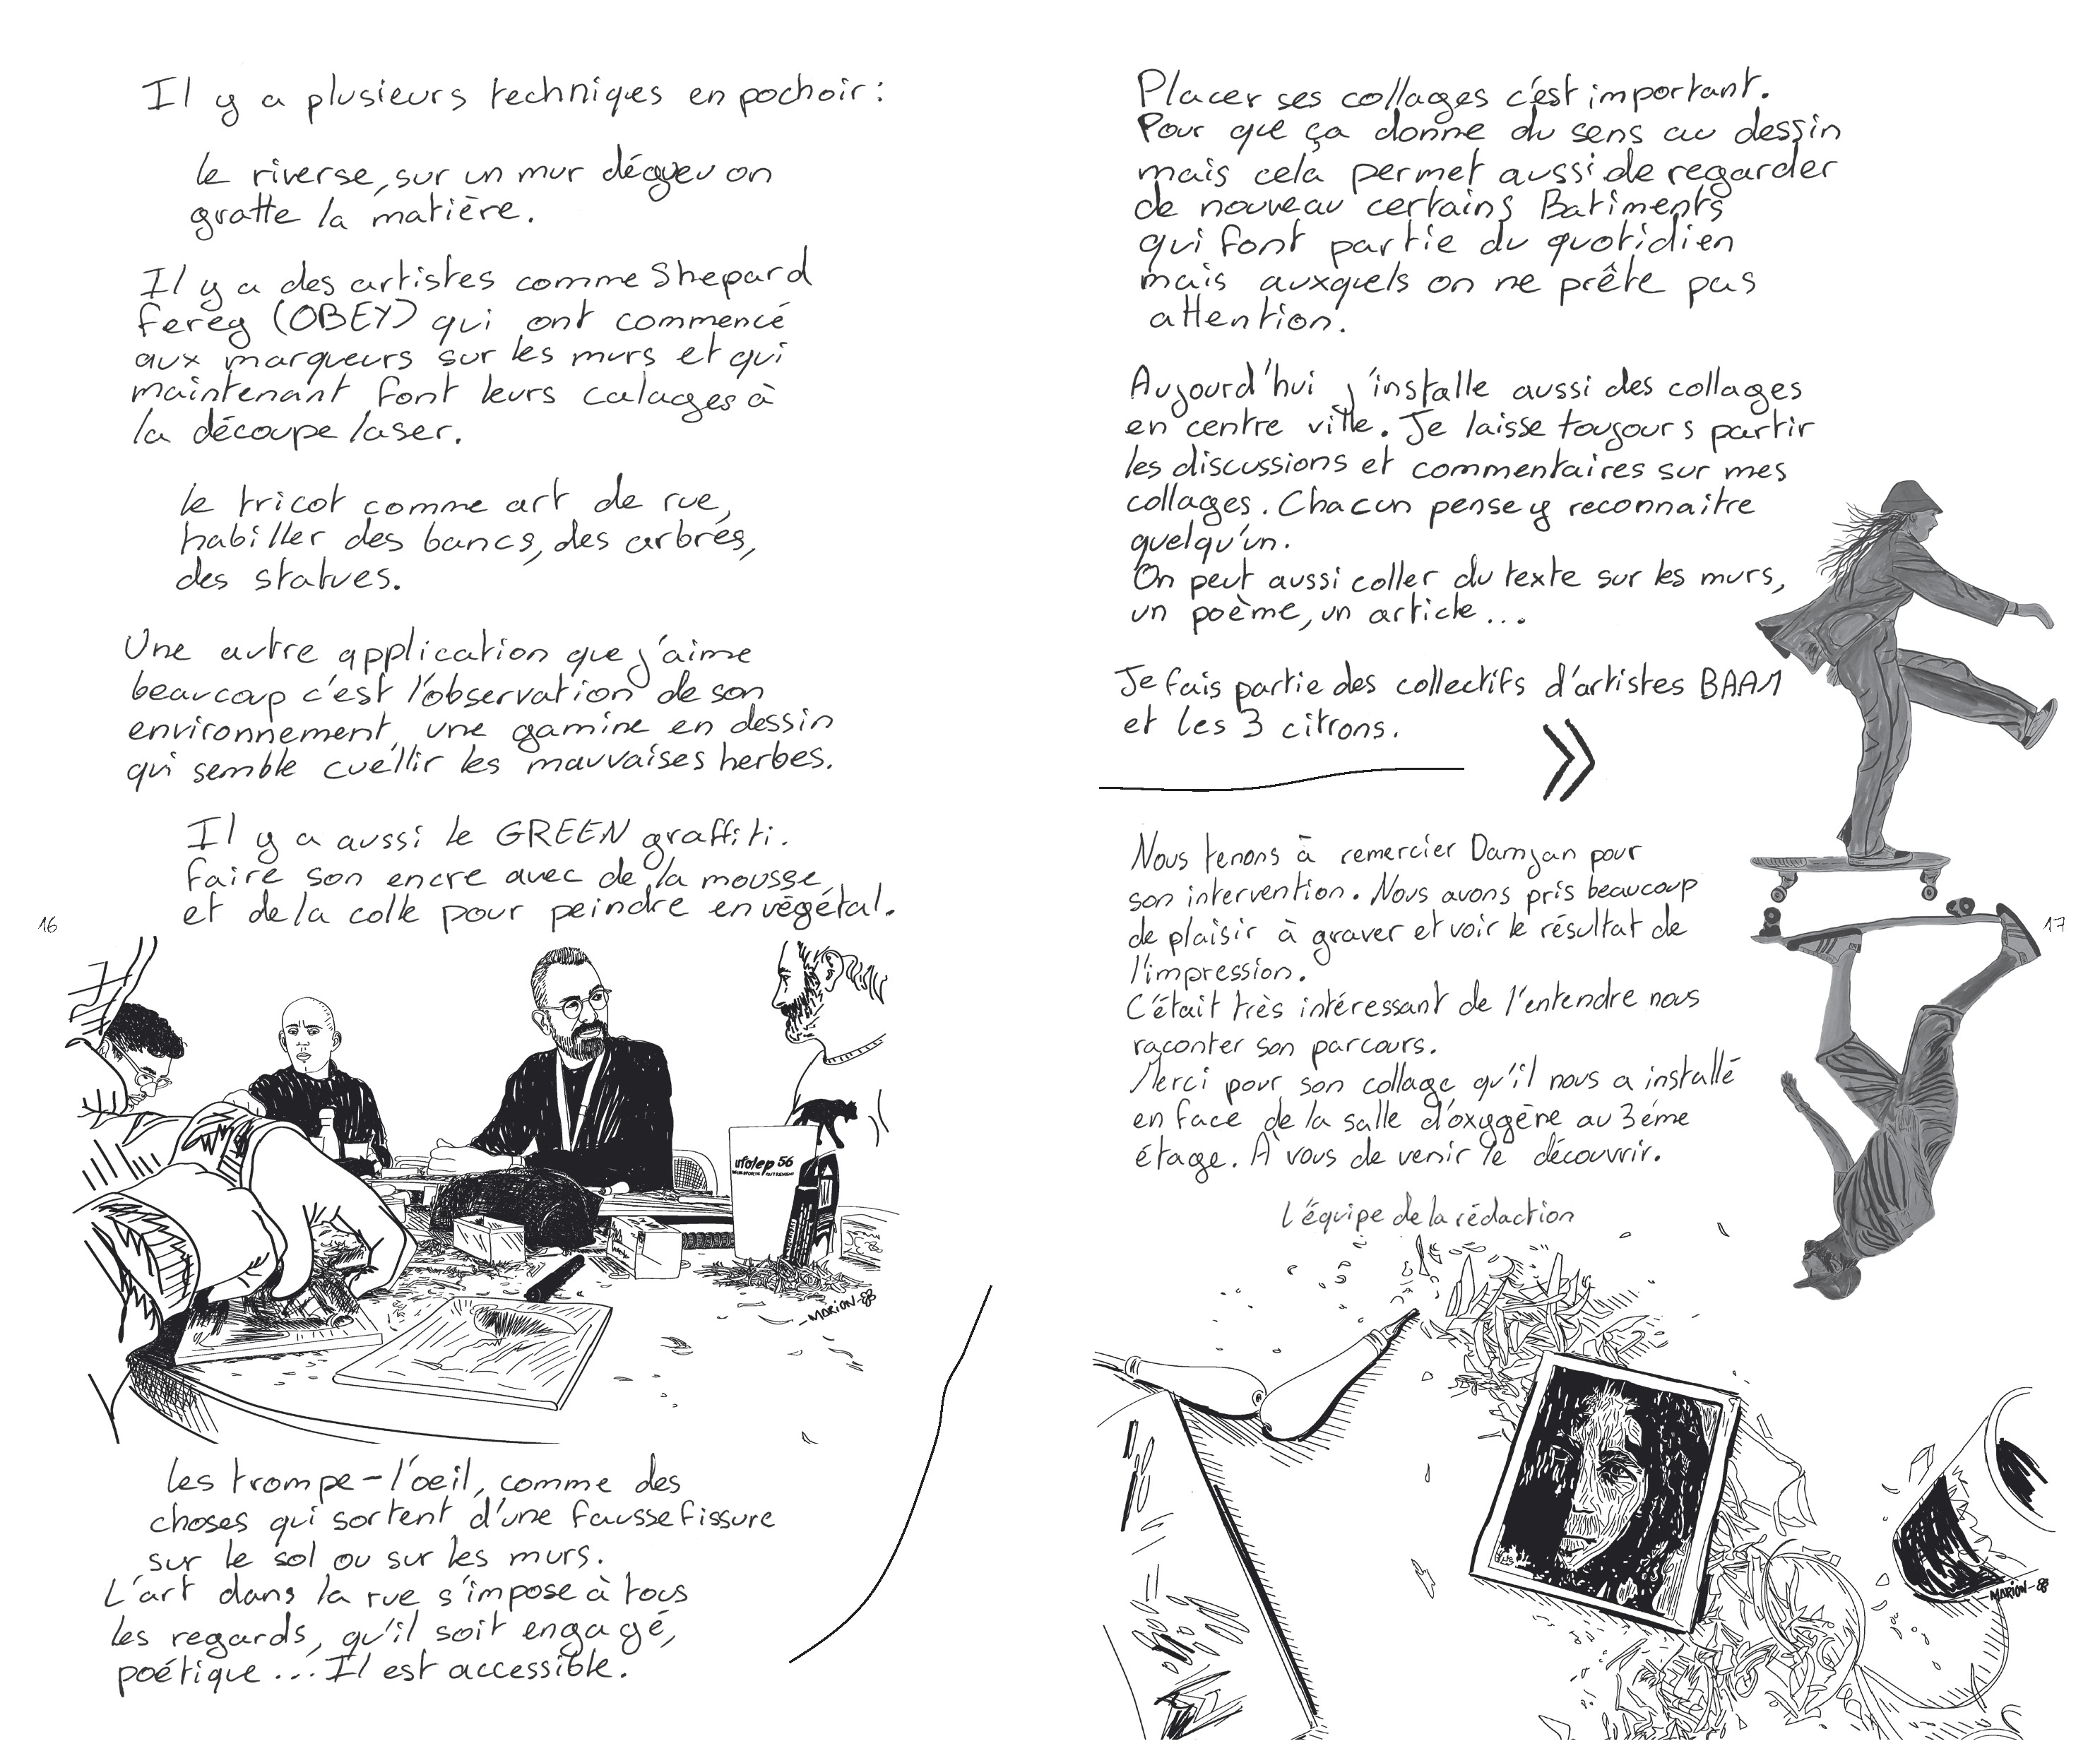 Il y a plusieurs techniqes en pochoir :
le riverse, sur un mur dégueu on
gratte la matière.
Il y a des artistes comme Shepard
fereg (OBEY) qui ont commencé
aux marqueurs sur les murs et qui
maintenant font leurs calages à
la découpe laser.
le tricot comme art de rue,
habiller des bancs, des arbres,
des statues.
Une autre application que j'aime
beaucoup c'est l'observation de son
environnement, une gamine en dessin
qui semble cuellir les mauvaises herbes.
Il y a aussi le GREEN graffiti.
faire son encre avec de la mousse
et de la colle pour peindre en végétal.
16
ufolep 56
MARION-88
les trompe-l'oeil, comme des
choses qui sortent d'une fausse fissure
sur le sol ou sur les murs.
L'art dans la rue s'impose à tous
les regards, qu'il soit engagé,
poétique ... Il est accessible.
Placer ses collages c'est important.
Pour que ça donne du sens au dessin
mais cela permet aussi de regarder
de nouveau certains Batiments
qui font partie du quotidien
mais auxquels on ne prête pas
attention.
Aujourd'hui j'installe aussi des collages
en centre ville. Je laisse toujours partir
les discussions et commentaires sur mes
collages. Chacun pense y reconnaitre
quelqu'un.
On peut aussi coller du texte sur les murs,
un poème, un article ...
Je fais partie des collectifs d'artistes BAAM
et les 3 citrons.
»
Nous tenons à remercier Damjan pour
son intervention. Nous avons pris beaucoup
de plaisir à graver et voir le résultat de
l'impression.
C'était très intéressant de l'entendre nous
raconter son parcours.
Merci pour son collage qu'il nous a installé
en face de la salle d'oxygène au 3éme
étage. À vous de venir le découvrir.
L'équipe de la rédaction
17
MARION-88